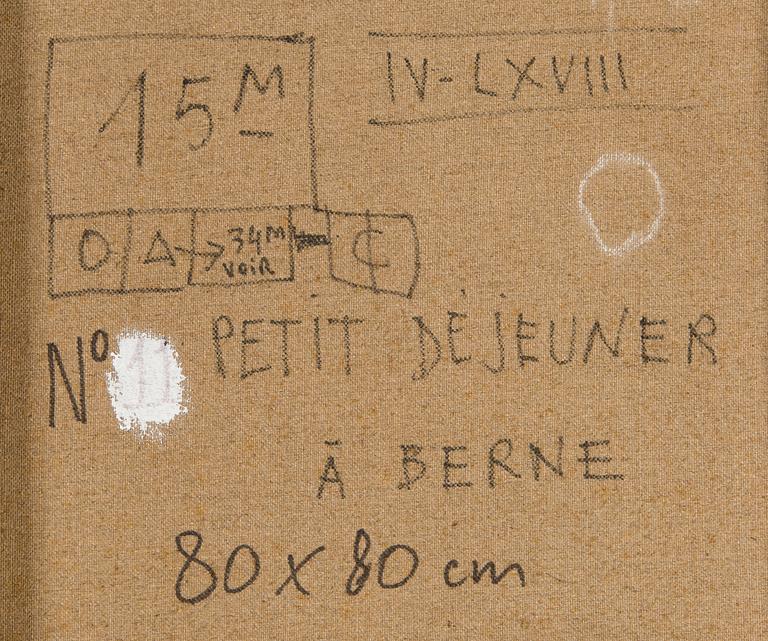 15M
IV-LXVIII
O Δ → 34M
VOIR
PETIT DÉJEUNER
Nº 11
À BERNE
80 x 80 cm